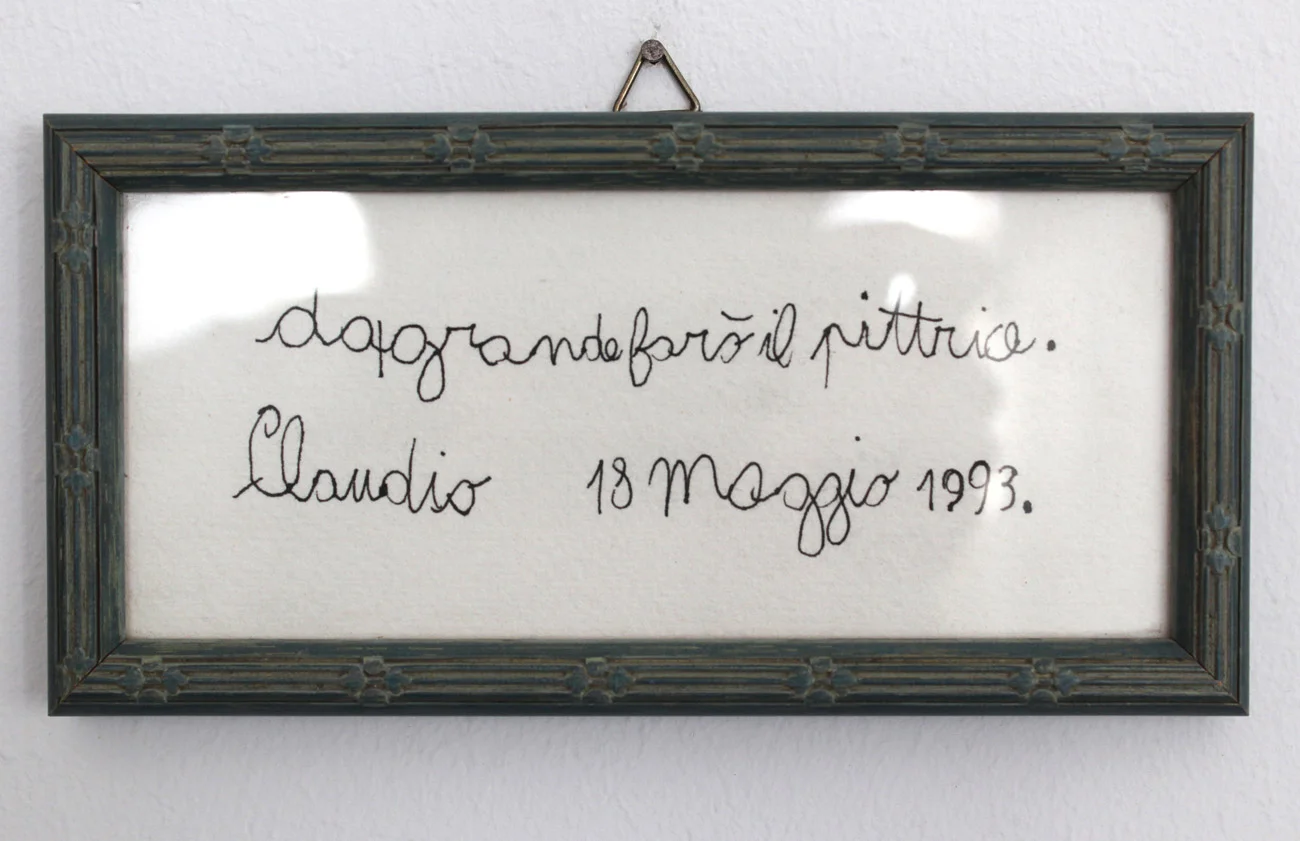 da grande farò il pittrice.
Claudio 18 Maggio 1993.